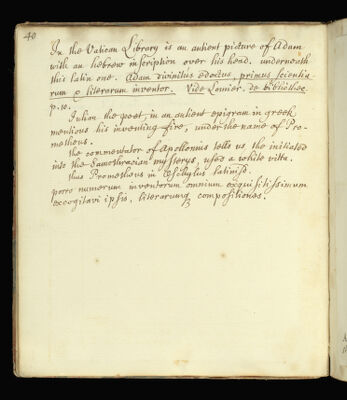 40
In the Vatican Library is an antient picture of Adam
with an hebrew inscription over his head. underneath
this latin one. Adam divinitus edoctus, primus scientia
rum & literarum inventor. Vide Lomier. de bibliothec.
p. 10.
Julian the poet in an antient epigram in greek
mentions his inventing fire, under the name of Pro-
metheus.
the commentator of Apollonius tells us, the initiated
into the Samothracian mysterys, used a white vitta.
thus Prometheus in Æschylus latinis'd.
porro numerum inventorum omnium exquisitissimum
excogitavi ipsis, literarumq compositiones.